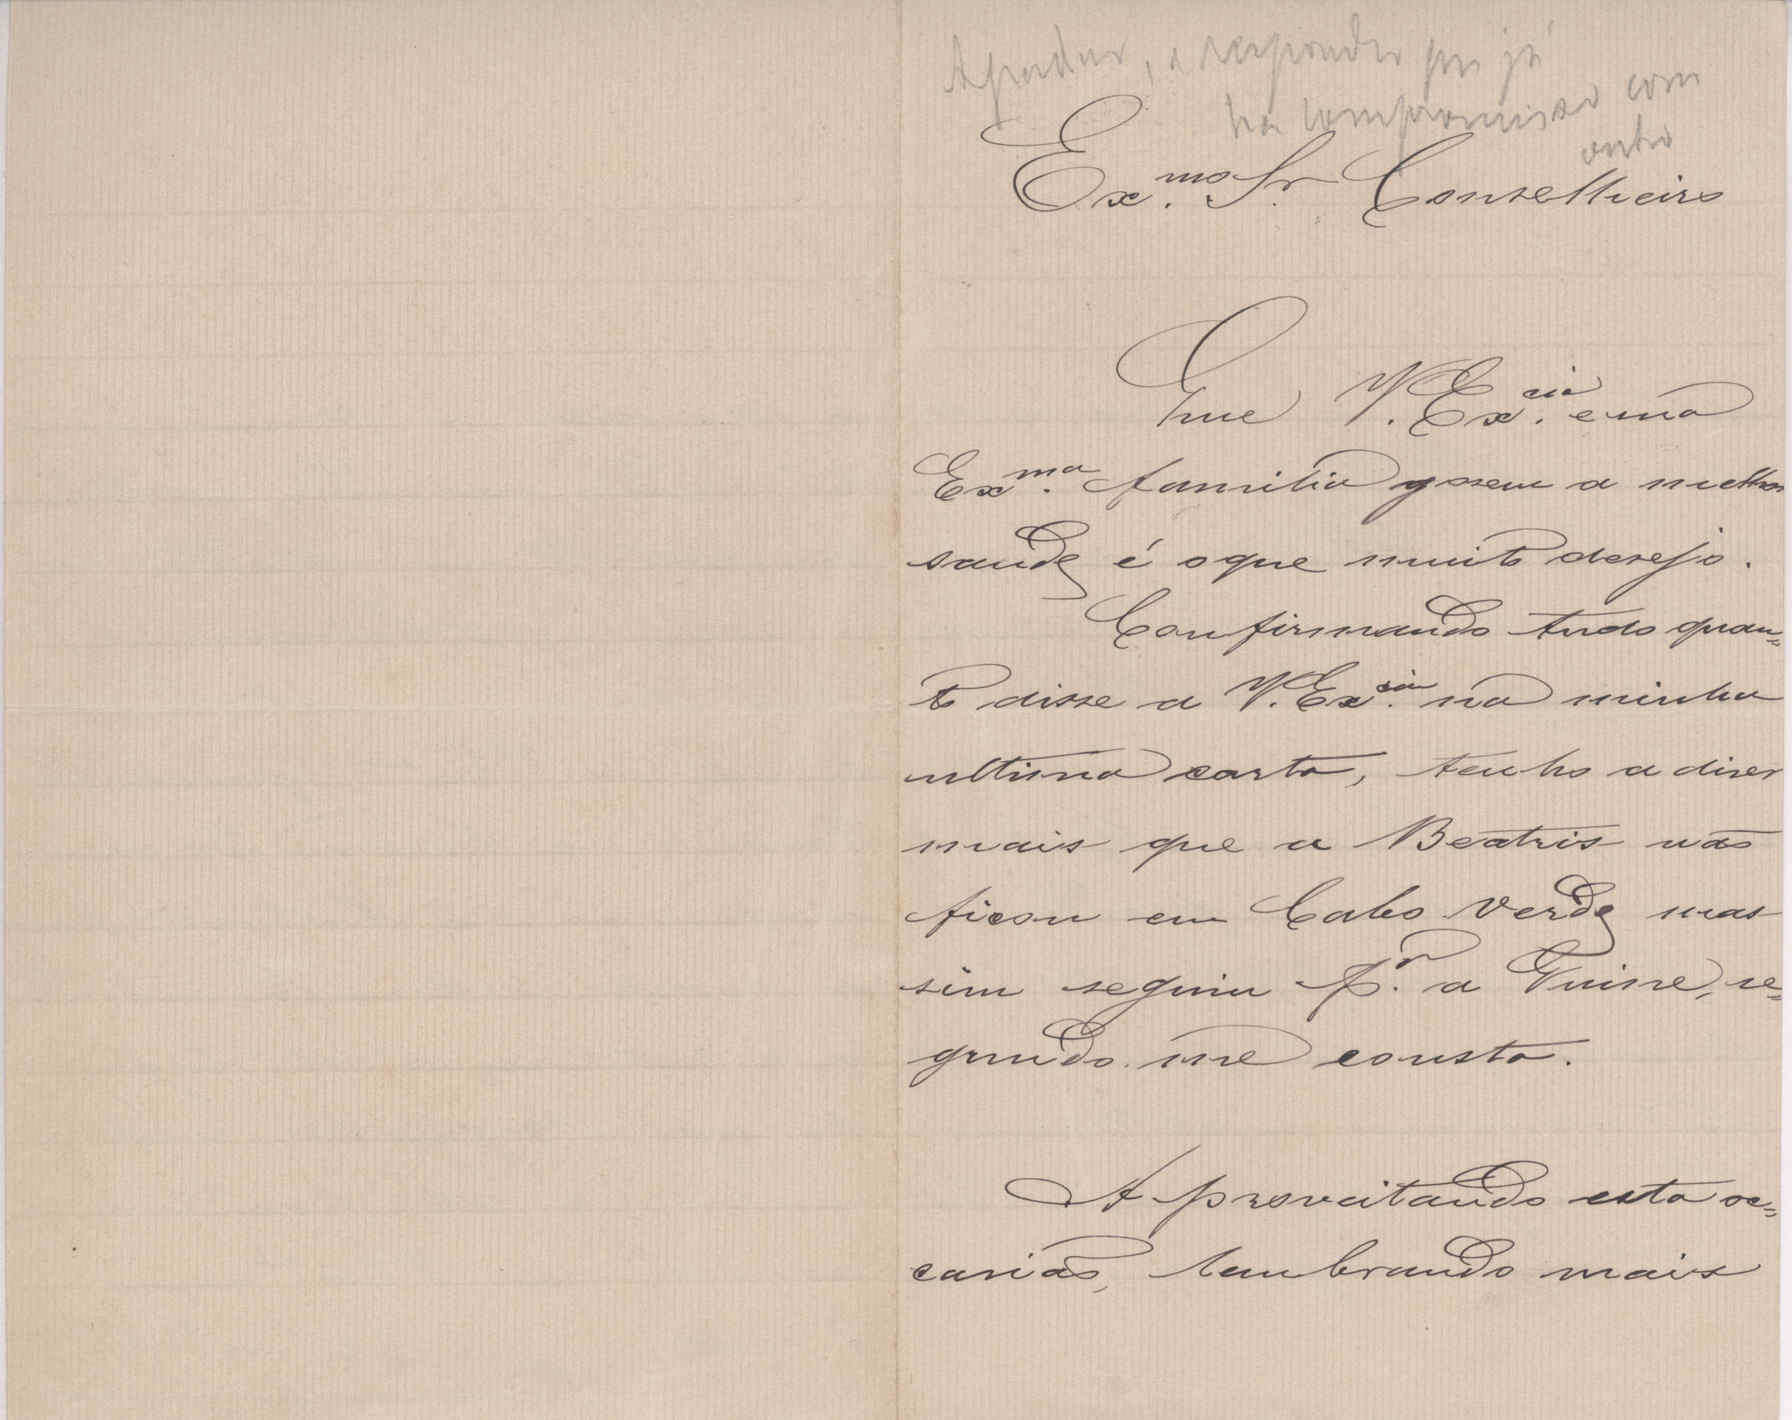 Agradecer, e responder que já
ha compromisso com
outro
Ex.mo Sr. Conselheiro
Que V. Ex.cia e ma
Ex.ma familia gosem a melhor
saude é o que muito desejo.
Confirmando tudo quan=
to disse a V. Ex.cia na minha
ultima carta, tenho a diser
mais que a Beatris não
ficou em Cabo Verde mas
sim seguiu p.a a Guine, se=
gundo me consta.
Aproveitando esta oc=
casião, lembrando mais